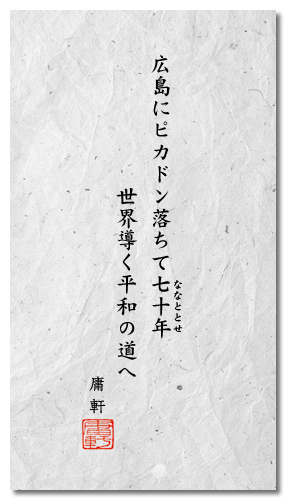 広島にピカドン落ちて七十年
ななととせ
世界導く平和の道へ
庸軒
庸軒